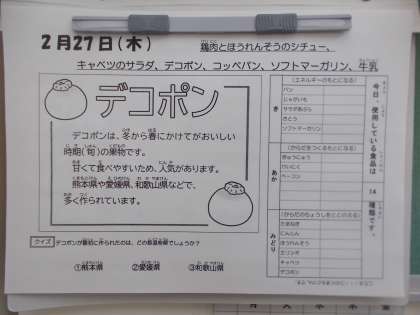 2月27日(木)
鶏肉とほうれんそうのシチュー、
キャベツのサラダ、デコポン、コッペパン、ソフトマーガリン、牛乳
デコポン
デコポンは、冬から春にかけてがおいしい
時期(旬)の果物です。
甘くて食べやすいため、人気があります。
熊本県や愛媛県、和歌山県などで、
多く作られています。
クイズ デコポンが最初に作られたのは、どの都道府県でしょうか?
①熊本県 ②愛媛県 ③和歌山県
今日、使用している食品は
14
種類です。
き
(エネルギーのもとになる)
パン
じゃがいも
サラダあぶら
さとう
ソフトマーガリン
あか
(からだをつくるもとになる)
ぎゅうにゅう
とりにく
ベーコン
みどり
(からだのちょうしをととのえる)
たまねぎ
にんじん
ほうれんそう
エリンギ
キャベツ
デコポン